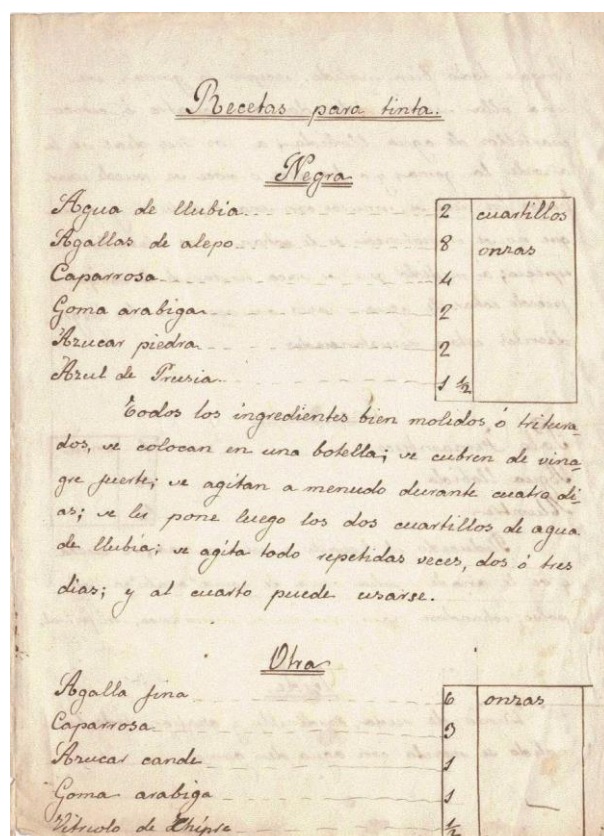 Recetas para tinta.
Negra
Agua de llubia 2 cuartillos
Agallas de alepo 8 onzas
Caparrosa 4
Goma arabiga 2
Azucar piedra 2
Azul de Prusia 1 ½
Todos los ingredientes bien molidos, ó tritura-
dos, se colocan en una botella; se cubren de vina-
gre fuerte; se agitan a menudo durante cuatro di-
as; se les pone luego los dos cuartillos de agua
de llubia; se agita todo repetidas veces, dos ó tres
dias; y al cuarto puede usarse.
Otra
Agalla fina 6 onzas
Caparrosa 3
Azucar cande 1
Goma arabiga 1
Vitriolo de Chipre ½